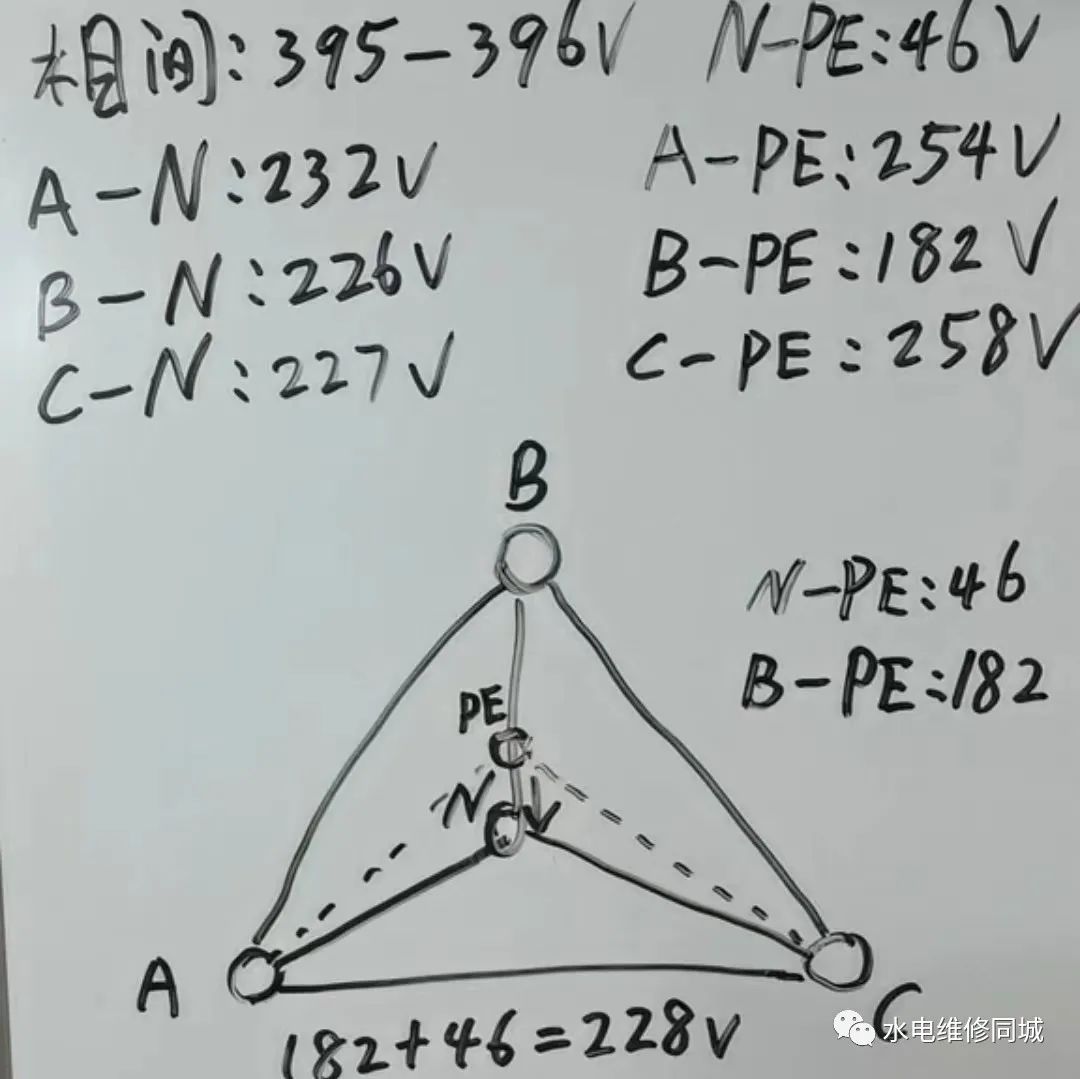 相间:395-396V
N-PE:46V
A-N:232V
A-PE:254V
B-N:226V
B-PE:182V
C-N:227V
C-PE:258V
B
N-PE:46
B-PE:182
PE
N
A
C
182+46=228V
水电维修同城